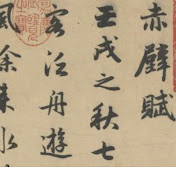 赤壁賦
壬戌之秋七
客泛舟遊
風徐來水